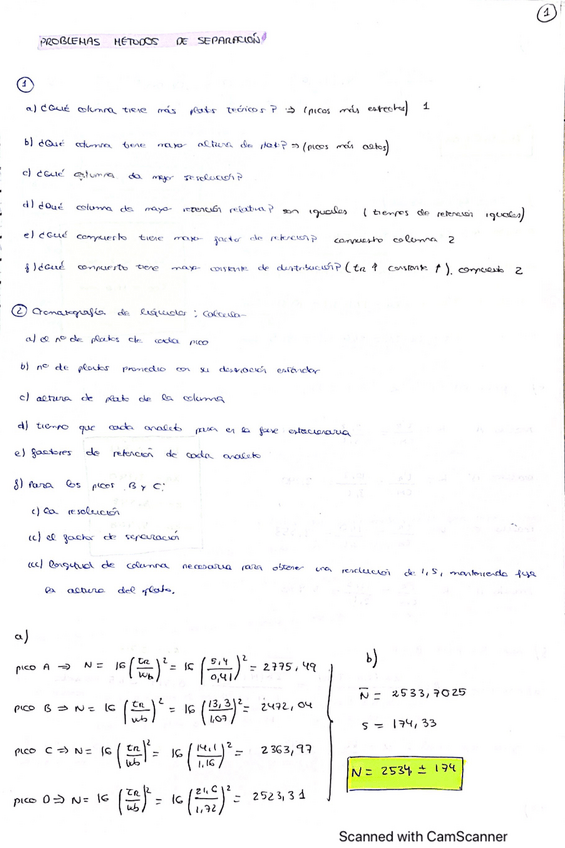 1
PROBLEMAS MÉTODOS DE SEPARACIÓN
1
a) ¿Qué columna tiene más platos teóricos? ⇒ (picos más estrechos) 1
b) ¿Qué columna tiene mayor altura de plat? ⇒ (picos más altos)
c) ¿Qué columna da mejor resolución?
d) ¿Qué columna da mayor retención relativa? son iguales (tiempos de retención iguales)
e) ¿Qué compuesto tiene mayor factor de retención? compuesto columna 2
f) ¿Qué compuesto tiene mayor constante de distribución? (tR ↑ constante ↑), compuesto 2
2 Cromatografía de líquidos: calcular
a) el nº de platos de cada pico
b) nº de platos promedio con su desviación estándar
c) altura de plato de la columna
d) tiempo que cada analito pasa en la fase estacionaria
e) factores de retención de cada analito
f) Para los picos B y C:
i) la resolución
ii) el factor de separación
iii) longitud de columna necesaria para obtener una resolución de 1,5, manteniendo fija
la altura del plato.
a)
pico A ⇒ N = 16 (tR/wb)² = 16 (5,4/0,41)² = 2775,49
pico B ⇒ N = 16 (tR/wb)² = 16 (13,3/1,07)² = 2472,04
pico C ⇒ N = 16 (tR/wb)² = 16 (14,1/1,16)² = 2363,97
pico D ⇒ N = 16 (tR/wb)² = 16 (21,6/1,72)² = 2523,31
b)
N̄ = 2533,7025
s = 174,33
N = 2534 ± 174
Scanned with CamScanner